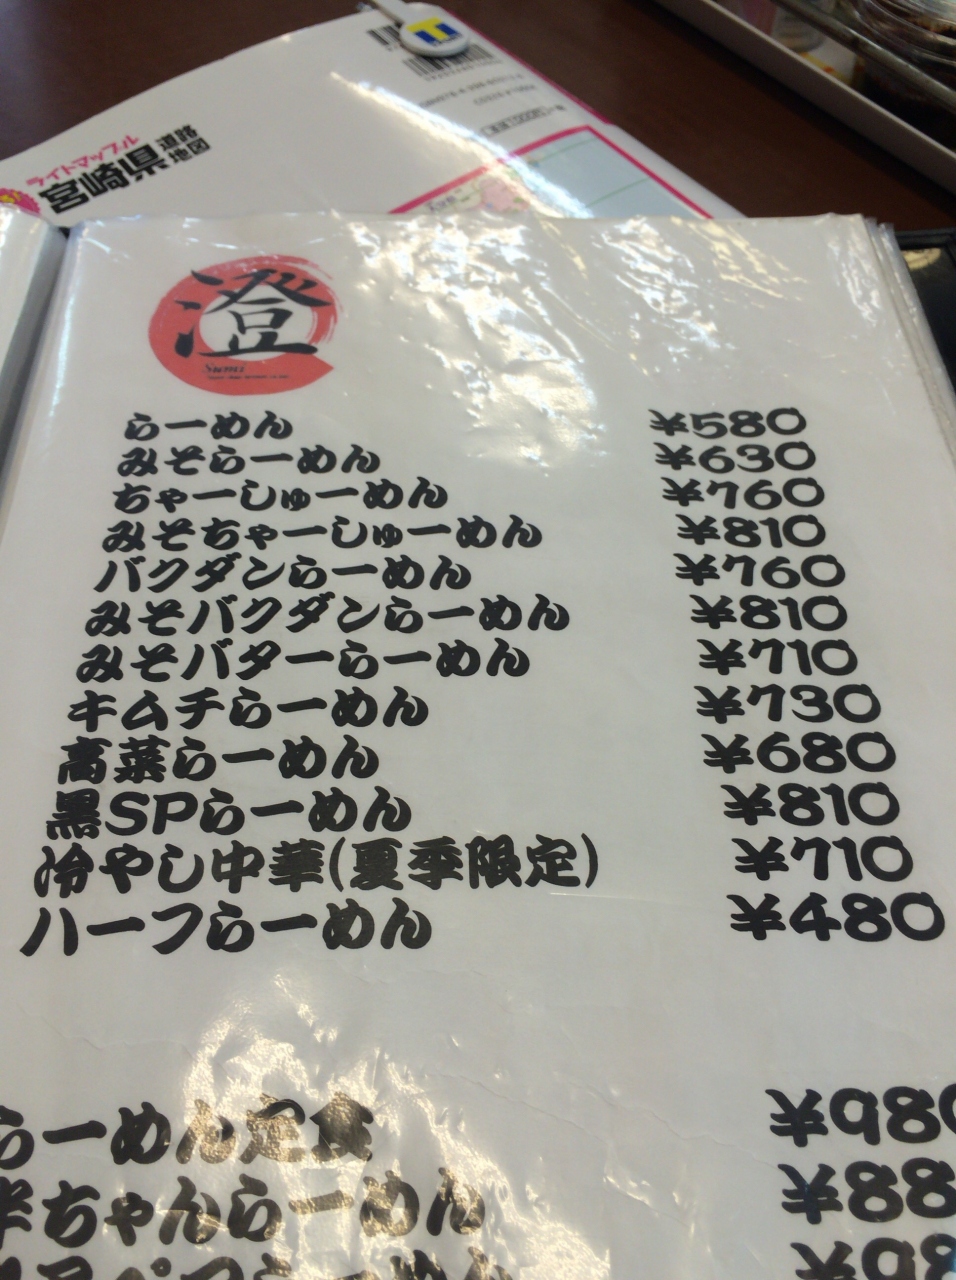 ライトマップル
宮崎県 道路地図
澄
Sumi
らーめん ¥580
みそらーめん ¥630
ちゃーしゅーめん ¥760
みそちゃーしゅーめん ¥810
バクダンらーめん ¥760
みそバクダンらーめん ¥810
みそバターらーめん ¥710
キムチらーめん ¥730
高菜らーめん ¥680
黒SPらーめん ¥810
冷やし中華(夏季限定) ¥710
ハーフらーめん ¥480
らーめん定食 ¥980
半ちゃんらーめん ¥88